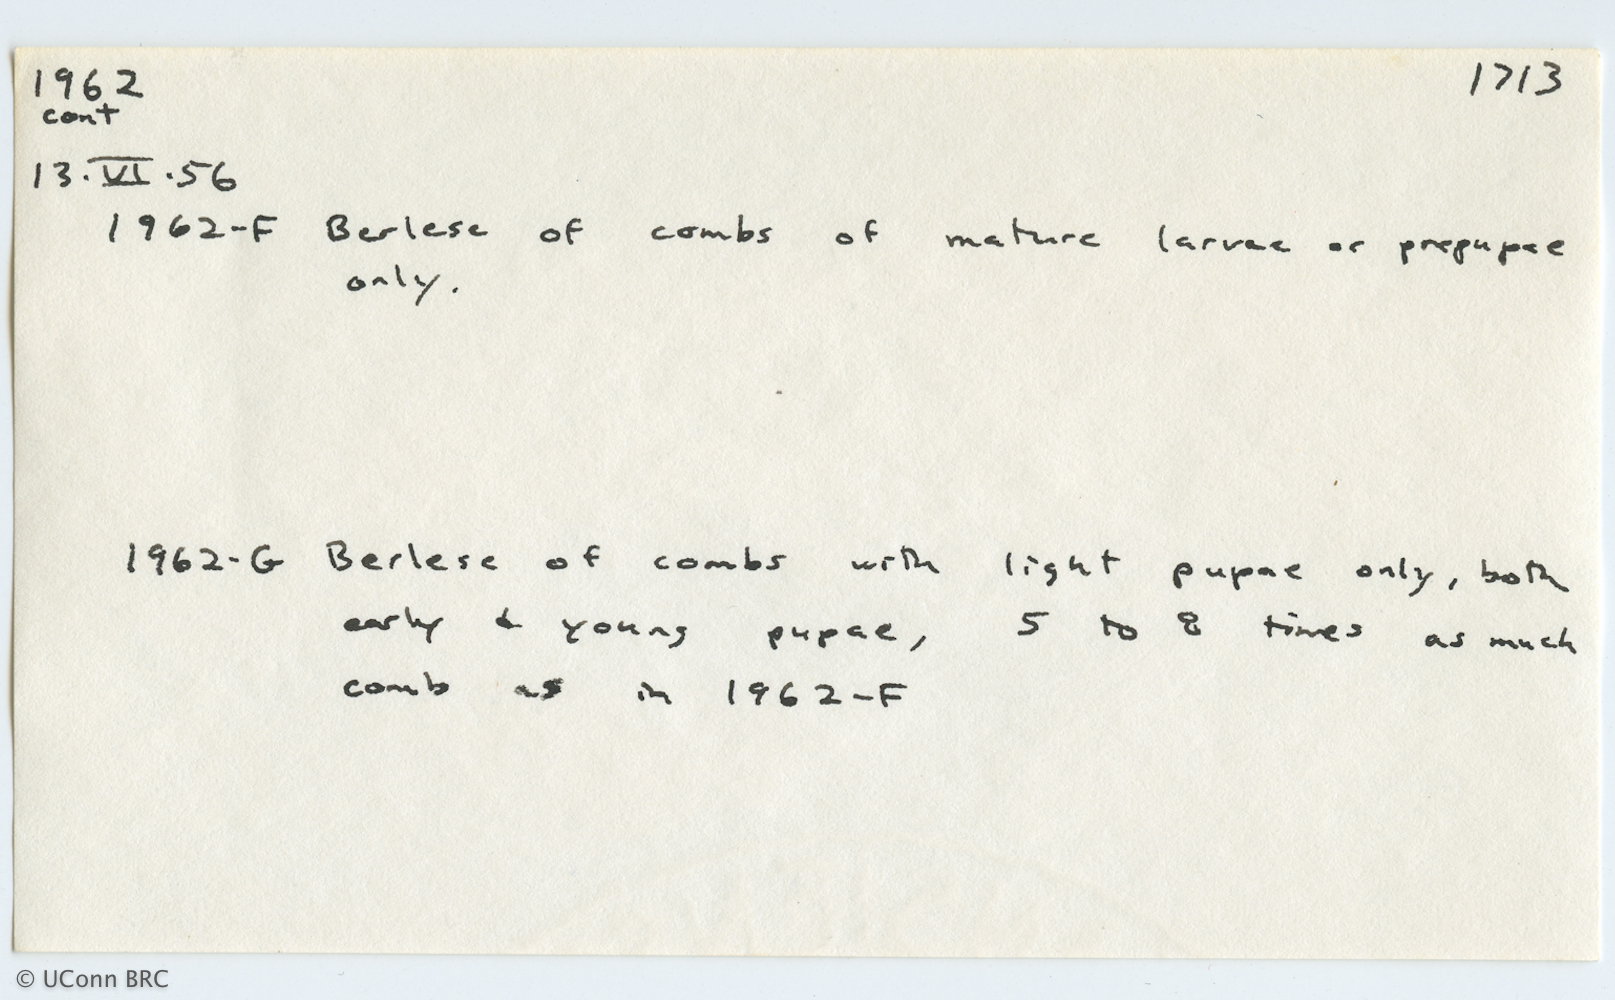 1962 1713
cont
13.VI.56
1962-F Berlese of combs of mature larvae or prepupae
only.
1962-G Berlese of combs with light pupae only, both
early & young pupae, 5 to 8 times as much
comb as in 1962-F
© UConn BRC